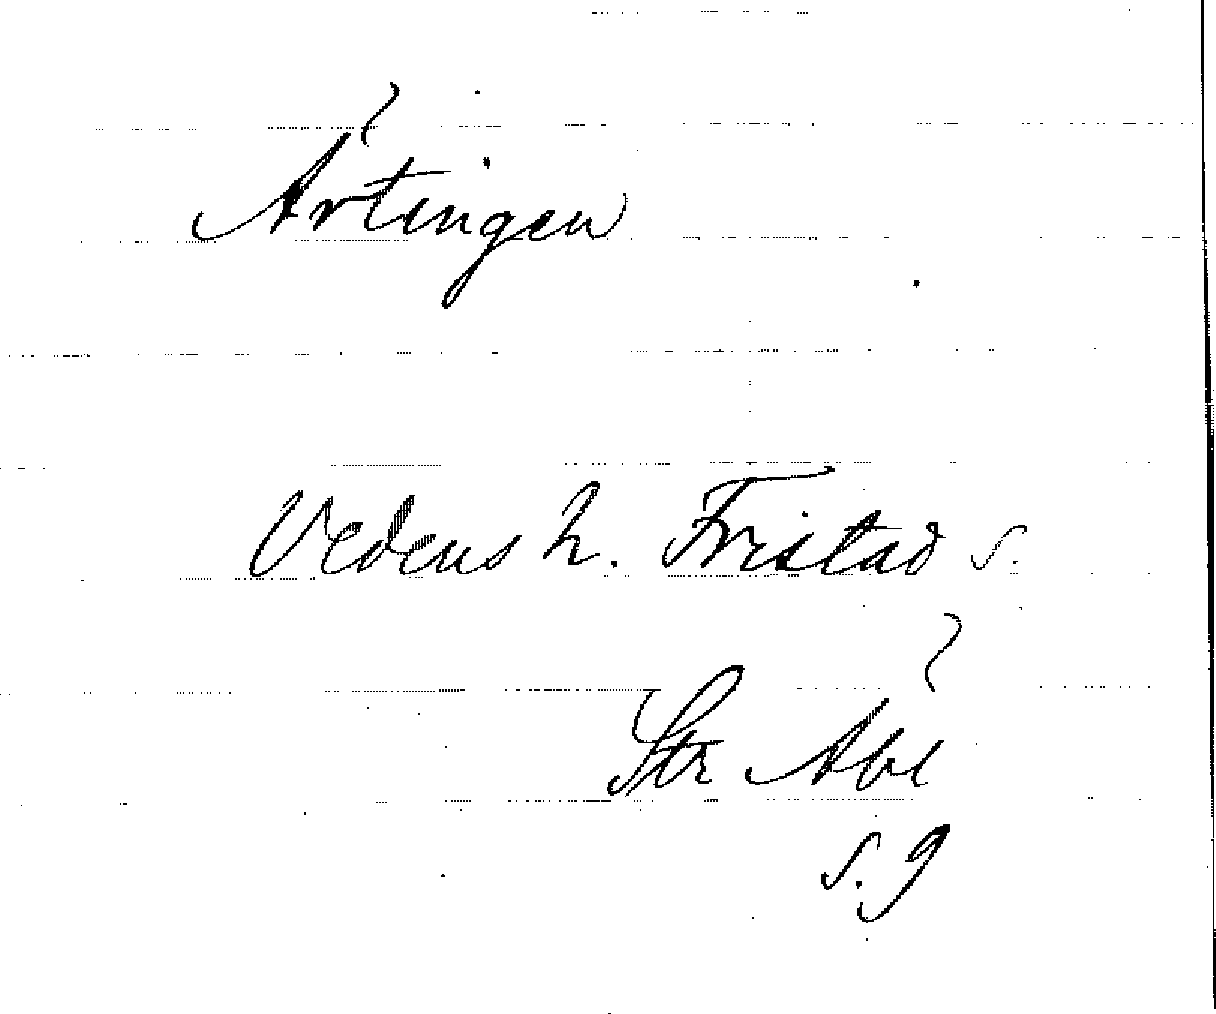 Ärtingen
Vedens h. Fristad s.
Str Äbl
s. 9